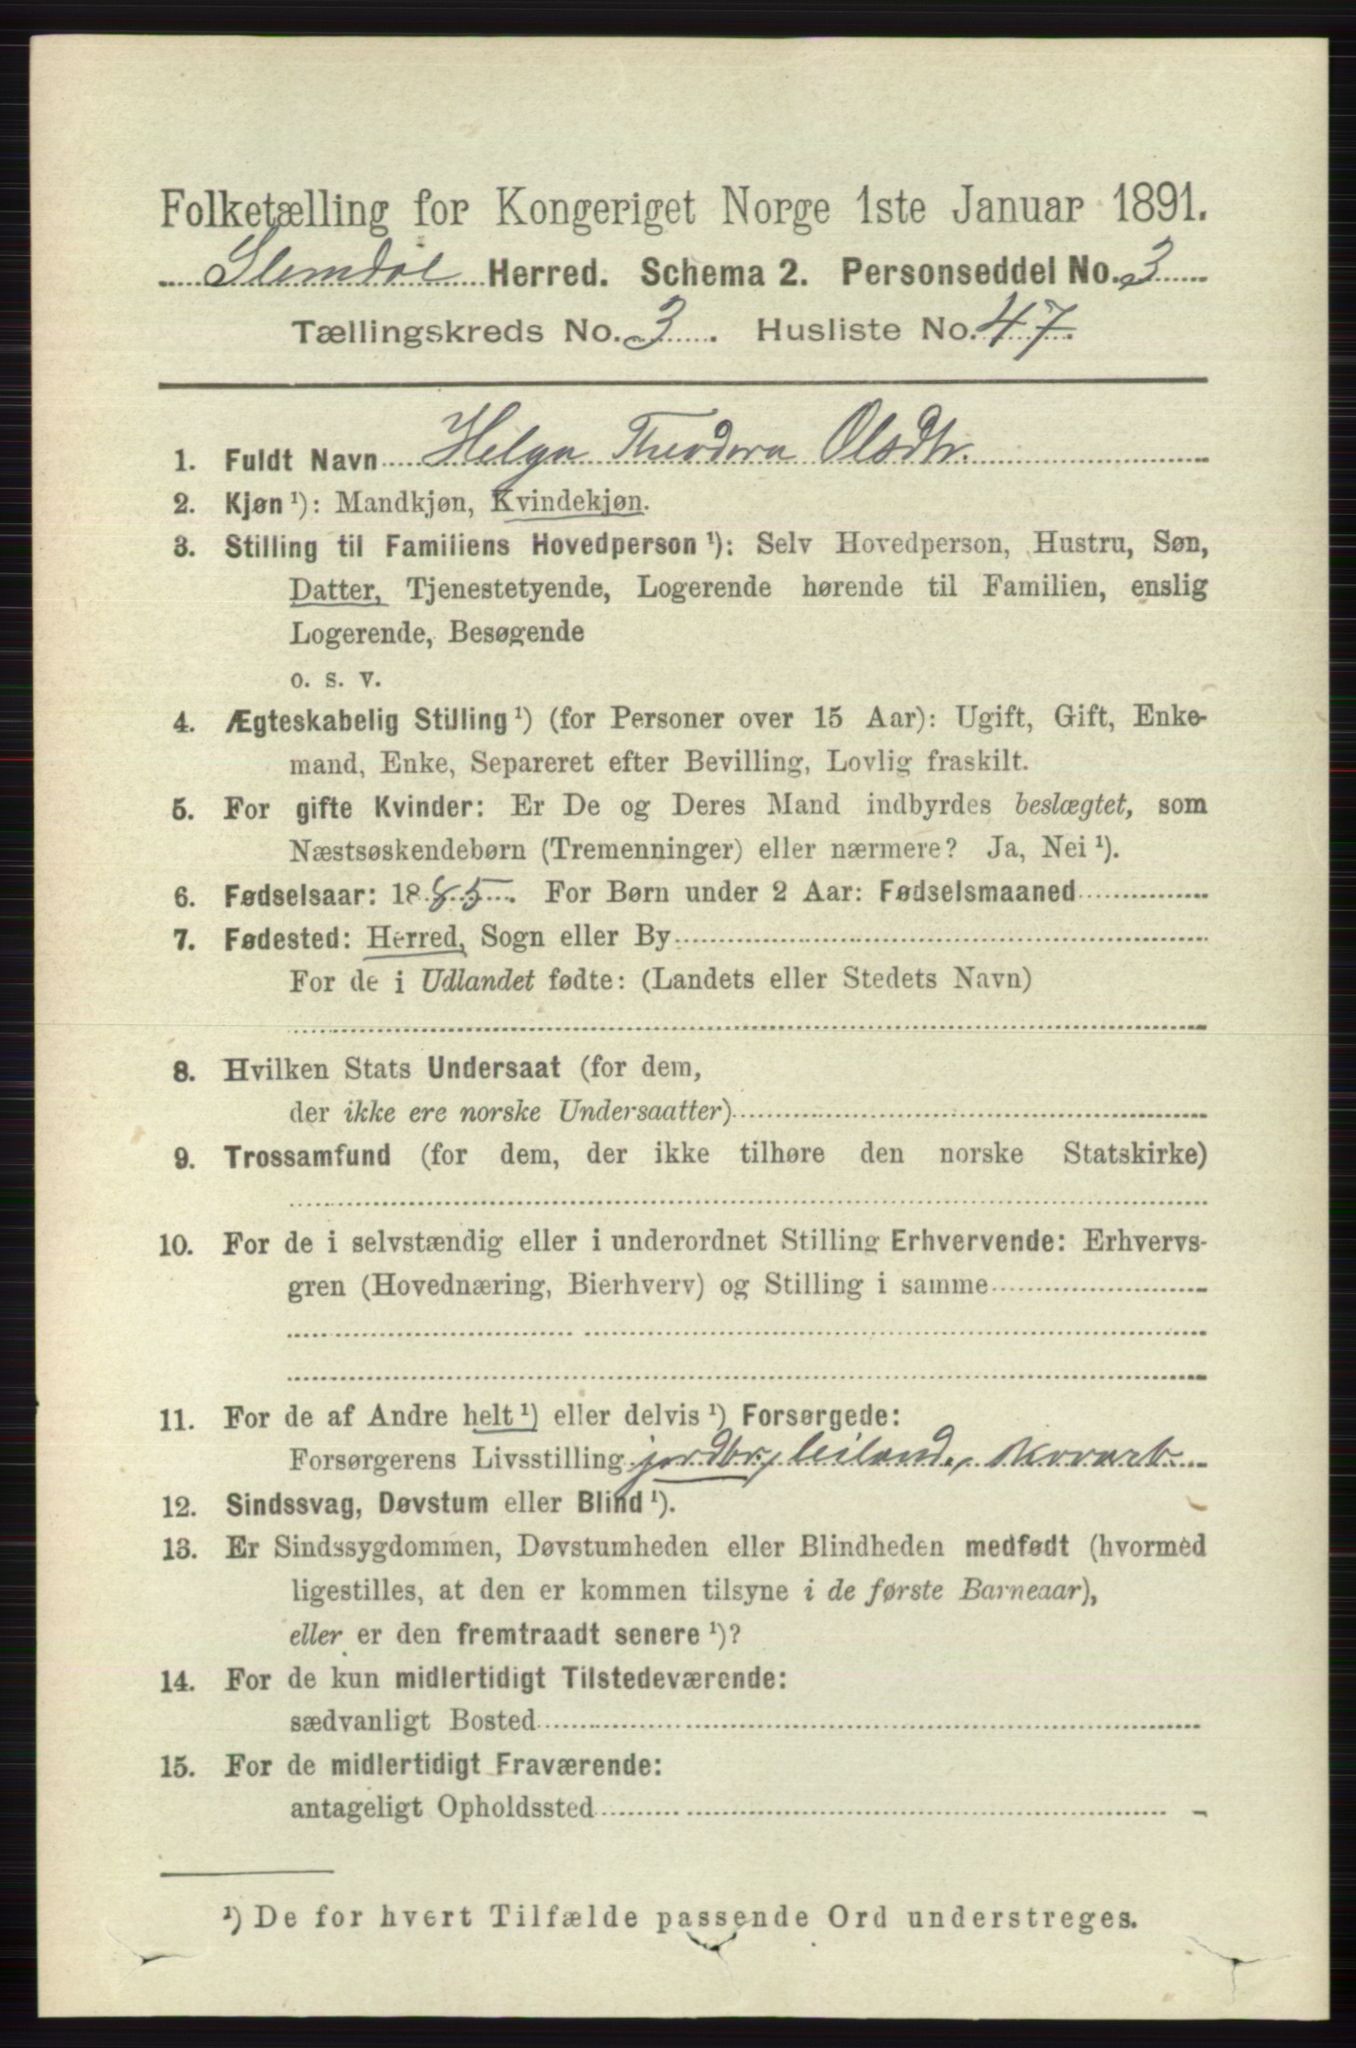 Folketælling for Kongeriget Norge 1ste Januar 1891.
Slemdal Herred. Schema 2. Personseddel No. 3
Tællingskreds No. 3. Husliste No. 47.
1. Fuldt Navn Helga Theodora Olsdtr.
2. Kjøn ¹): Mandkjøn, Kvindekjøn.
3. Stilling til Familiens Hovedperson ¹): Selv Hovedperson, Hustru, Søn,
Datter, Tjenestetyende, Logerende hørende til Familien, enslig
Logerende, Besøgende
o. s. v.
4. Ægteskabelig Stilling ¹) (for Personer over 15 Aar): Ugift, Gift, Enke-
mand, Enke, Separeret efter Bevilling, Lovlig fraskilt.
5. For gifte Kvinder: Er De og Deres Mand indbyrdes beslægtet, som
Næstsøskendebørn (Tremenninger) eller nærmere? Ja, Nei ¹).
6. Fødselsaar: 1885. For Børn under 2 Aar: Fødselsmaaned
7. Fødested: Herred, Sogn eller By
For de i Udlandet fødte: (Landets eller Stedets Navn)
8. Hvilken Stats Undersaat (for dem,
der ikke ere norske Undersaatter)
9. Trossamfund (for dem, der ikke tilhøre den norske Statskirke)
10. For de i selvstændig eller i underordnet Stilling Erhvervende: Erhvervs-
gren (Hovednæring, Bierhverv) og Stilling i samme
11. For de af Andre helt ¹) eller delvis ¹) Forsørgede:
Forsørgerens Livsstilling jordbr., leiland.,
12. Sindssvag, Døvstum eller Blind ¹).
13. Er Sindssygdommen, Døvstumheden eller Blindheden medfødt (hvormed
ligestilles, at den er kommen tilsyne i de første Barneaar),
eller er den fremtraadt senere ¹)?
14. For de kun midlertidigt Tilstedeværende:
sædvanligt Bosted
15. For de midlertidigt Fraværende:
antageligt Opholdssted
¹) De for hvert Tilfælde passende Ord understreges.